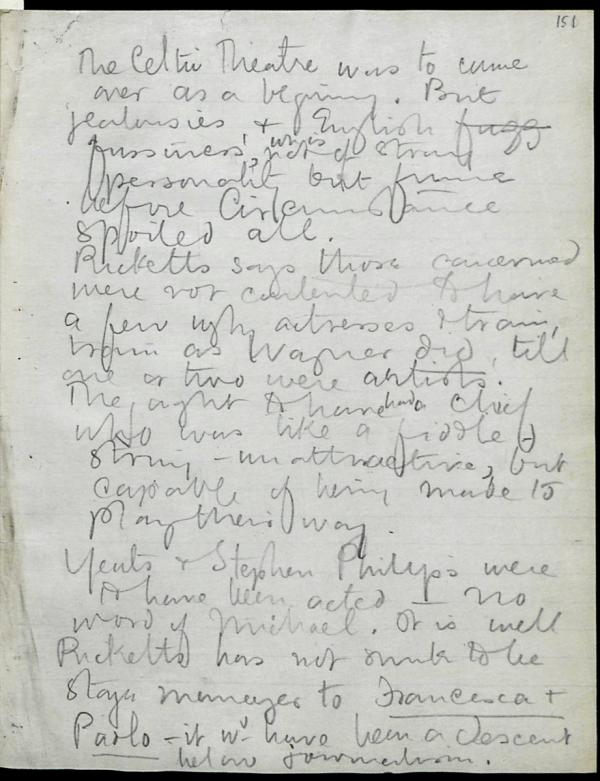 151
The Celtic Theatre was to come
over as a begining. But
jealousies & English fugg
fussiness, wh is not of strong
personality but fume
before Circumstance
spoiled all.
Ricketts says those concerned
were not contented to have
a few ugly actresses & train,
train as Wagner did, till
one or two were artists.
They ought to have had a Chief
who was like a fiddle &
string – unattractive, but
capable of being made to
play their way.
Yeats & Stephen Philips were
to have been acted – no
word of Michael. It is well
Ricketts has not sunk to be
stage manager to Francesca &
Paolo – it wd have been a descent
below journalism.